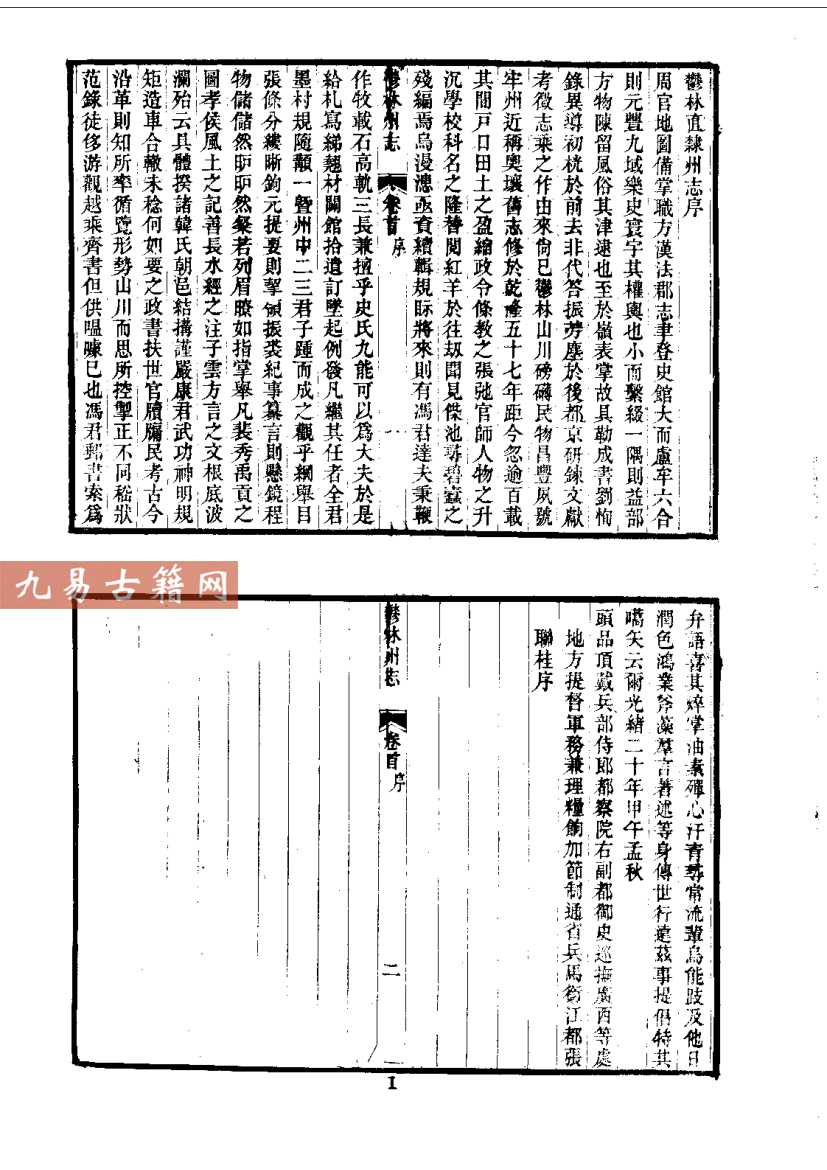 鬱林直隸州志序
周官地圖備掌職方漢法郡志聿登史館大而盧牟六合
則元豐九域樂史寰宇其權輿也小而繫綴一隅則益部
方物陳留風俗其津逮也至於嶺表掌故具勒成書劉恂
錄異導初桄於前去非代答振芳塵於後都京研鍊文獻
考徵志乘之作由來尚已鬱林山川磅礴民物昌豐夙號
牢州近稱奧壤舊志修於乾隆五十七年距今忽逾百載
其間戶口田土之盈縮政令條教之張弛官師人物之升
沉學校科名之隆替閱紅羊於往刼聞見傑池尋碧蠧之
殘編焉烏漫漶亟資續輯規眎將來則有馮君達夫秉鞭
鬱林州志
卷首
序
一
作牧載石高軌三長兼擅乎史氏九能可以爲大夫於是
給札寫綈翹材闢館拾遺訂墜起例發凡繼其任者全君
墨村規隨顓一暨州中二三君子踵而成之觀乎綱舉目
張條分縷晰鉤元提要則挈領振裘紀事纂言則懸鏡程
物儲儲然昈昈然粲若列眉瞭如指掌舉凡裴秀禹貢之
圖孝侯風土之記善長水經之注子雲方言之文根底波
瀾殆云具體揆諸韓氏朝邑結搆謹嚴康君武功神明規
矩造車合轍未稔何如要之政書扶世官牘牖民考古今
沿革則知所率循覽形勢山川而思所控掣正不同嵇狀
范錄徒侈游觀越乘齊書但供嗢噱已也馮君郵書索爲
弁語喜其焠掌油素殫心汗青尋常流輩烏能跂及他日
潤色鴻業斧藻羣言著述等身傳世行遠茲事提倡特其
嚆矢云爾光緒二十年甲午孟秋
頭品頂戴兵部侍郎都察院右副都御史巡撫廣西等處
地方提督軍務兼理糧餉加節制通省兵馬銜江都張
聯桂序
鬱林州志
卷首
序
二
1
九易古籍网